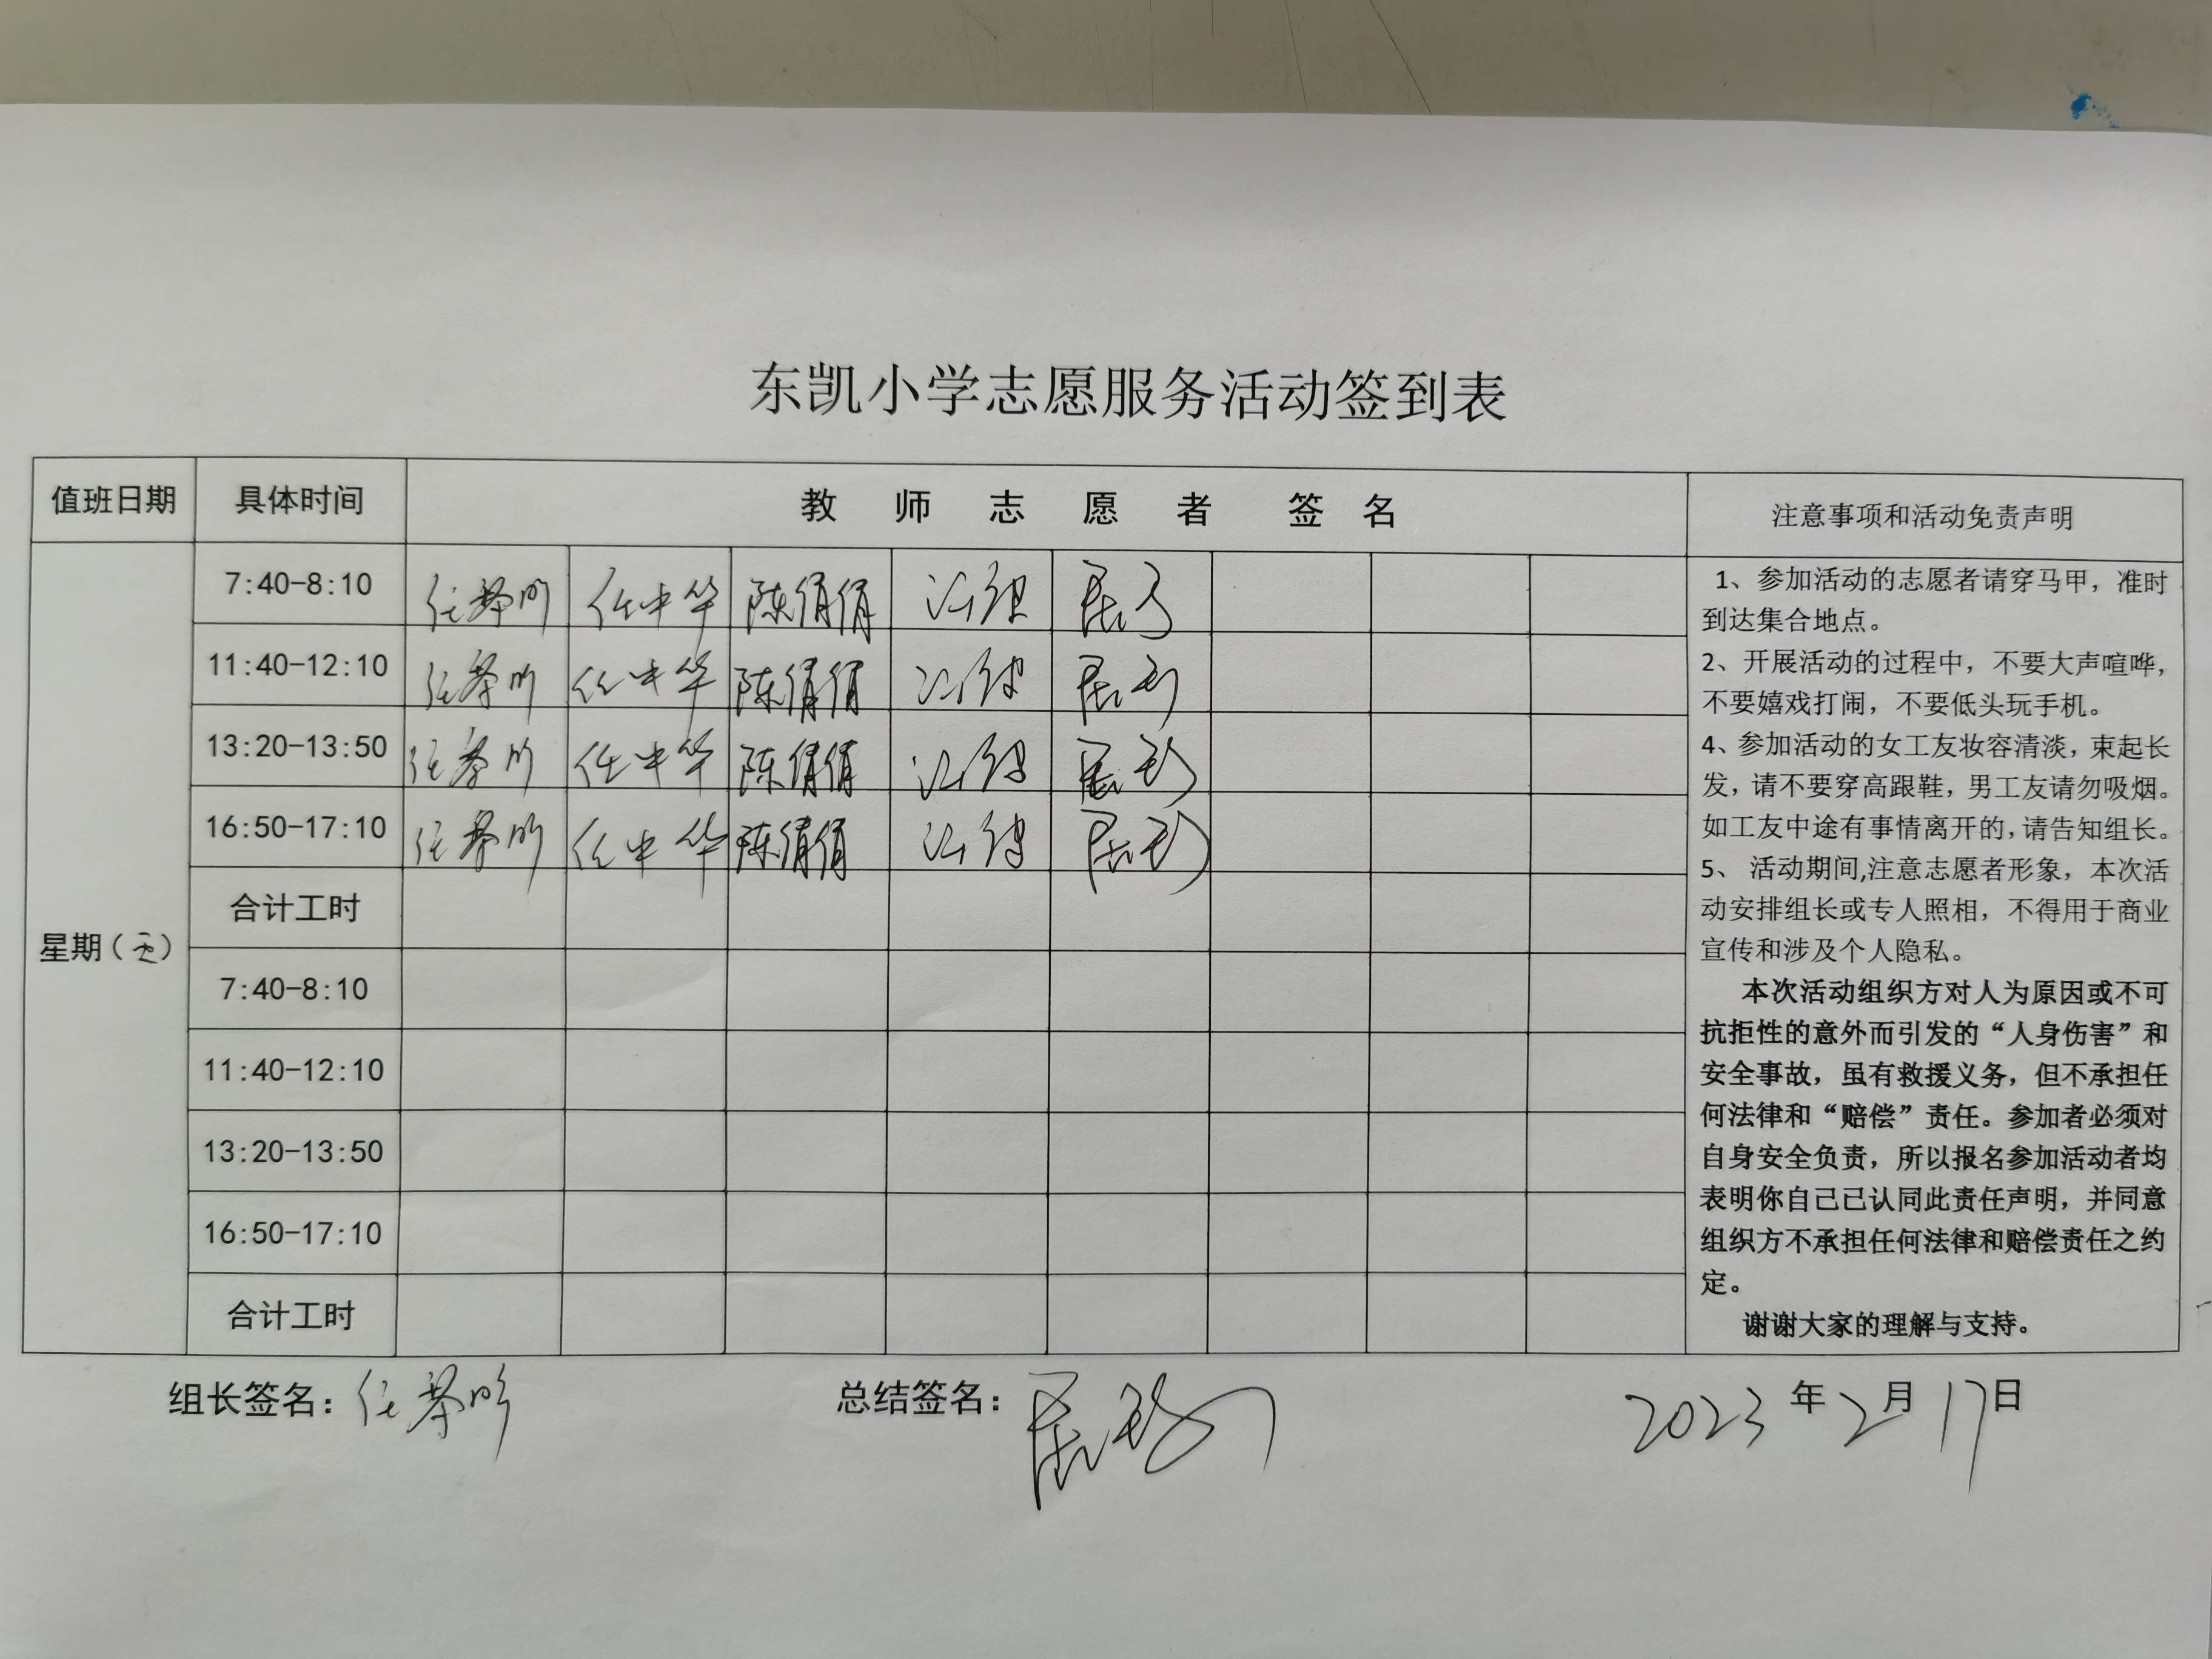 东凯小学志愿服务活动签到表
值班日期 具体时间 教师志愿者 签名 注意事项和活动免责声明
星期（五）
7:40-8:10 任 任中华 陈俏俏
11:40-12:10 任 任中华 陈俏俏
13:20-13:50 任 任中华 陈俏俏
16:50-17:10 任 任中华 陈俏俏
合计工时
7:40-8:10
11:40-12:10
13:20-13:50
16:50-17:10
合计工时
1、参加活动的志愿者请穿马甲，准时
到达集合地点。
2、开展活动的过程中，不要大声喧哗，
不要嬉戏打闹，不要低头玩手机。
4、参加活动的女工友妆容清淡，束起长
发，请不要穿高跟鞋，男工友请勿吸烟。
如工友中途有事情离开的，请告知组长。
5、 活动期间,注意志愿者形象，本次活
动安排组长或专人照相，不得用于商业
宣传和涉及个人隐私。
本次活动组织方对人为原因或不可
抗拒性的意外而引发的“人身伤害”和
安全事故，虽有救援义务，但不承担任
何法律和“赔偿”责任。参加者必须对
自身安全负责，所以报名参加活动者均
表明你自己已认同此责任声明，并同意
组织方不承担任何法律和赔偿责任之约
定。
谢谢大家的理解与支持。
组长签名：任 总结签名： 2023年2月17日